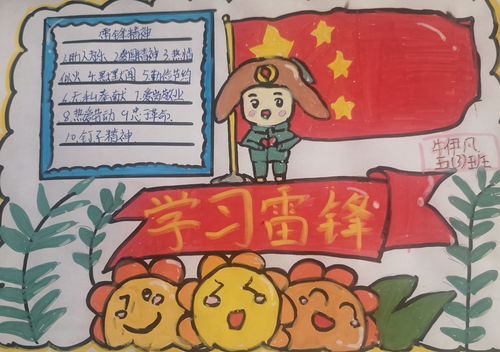 雷锋精神
1.助人为乐 2.爱国精神 3.热情
似火 4.艰苦奋斗 5.勤俭节约
6.无私奉献 7.爱岗敬业
8.热爱劳动 9.忠于革命
10.钉子精神
牛伊凡
五(3)班
学习雷锋